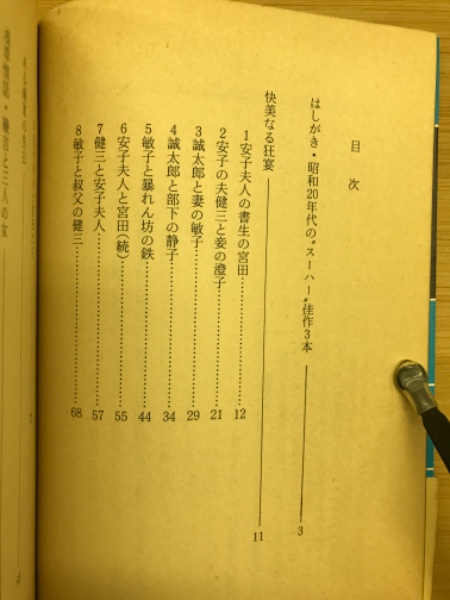 目次
はしがき・昭和20年代の〝スーハー〟佳作3本 3
快美なる狂宴 11
1 安子夫人の書生の宮田 12
2 安子の夫健三と妾の澄子 21
3 誠太郎と妻の敏子 29
4 誠太郎と部下の静子 34
5 敏子と暴れん坊の鉄 44
6 安子夫人と宮田(続) 55
7 健三と安子夫人 57
8 敏子と叔父の健三 68